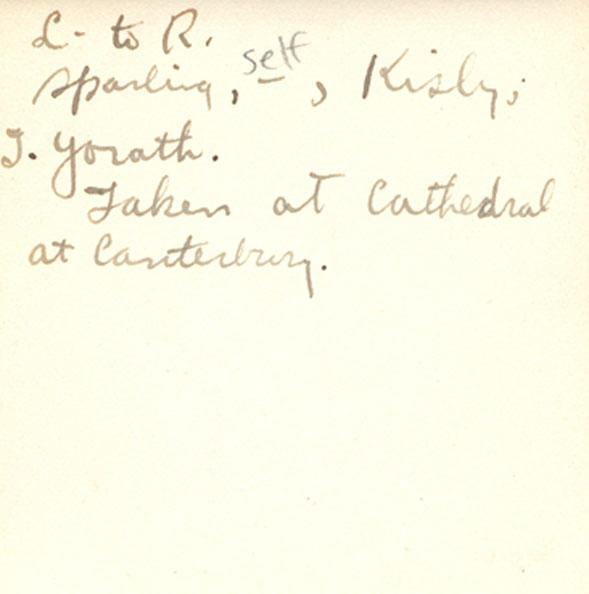 L- to R.
Sparling, self, Kisly,
J. Yorath.
Taken at Cathedral
at Canterbury.